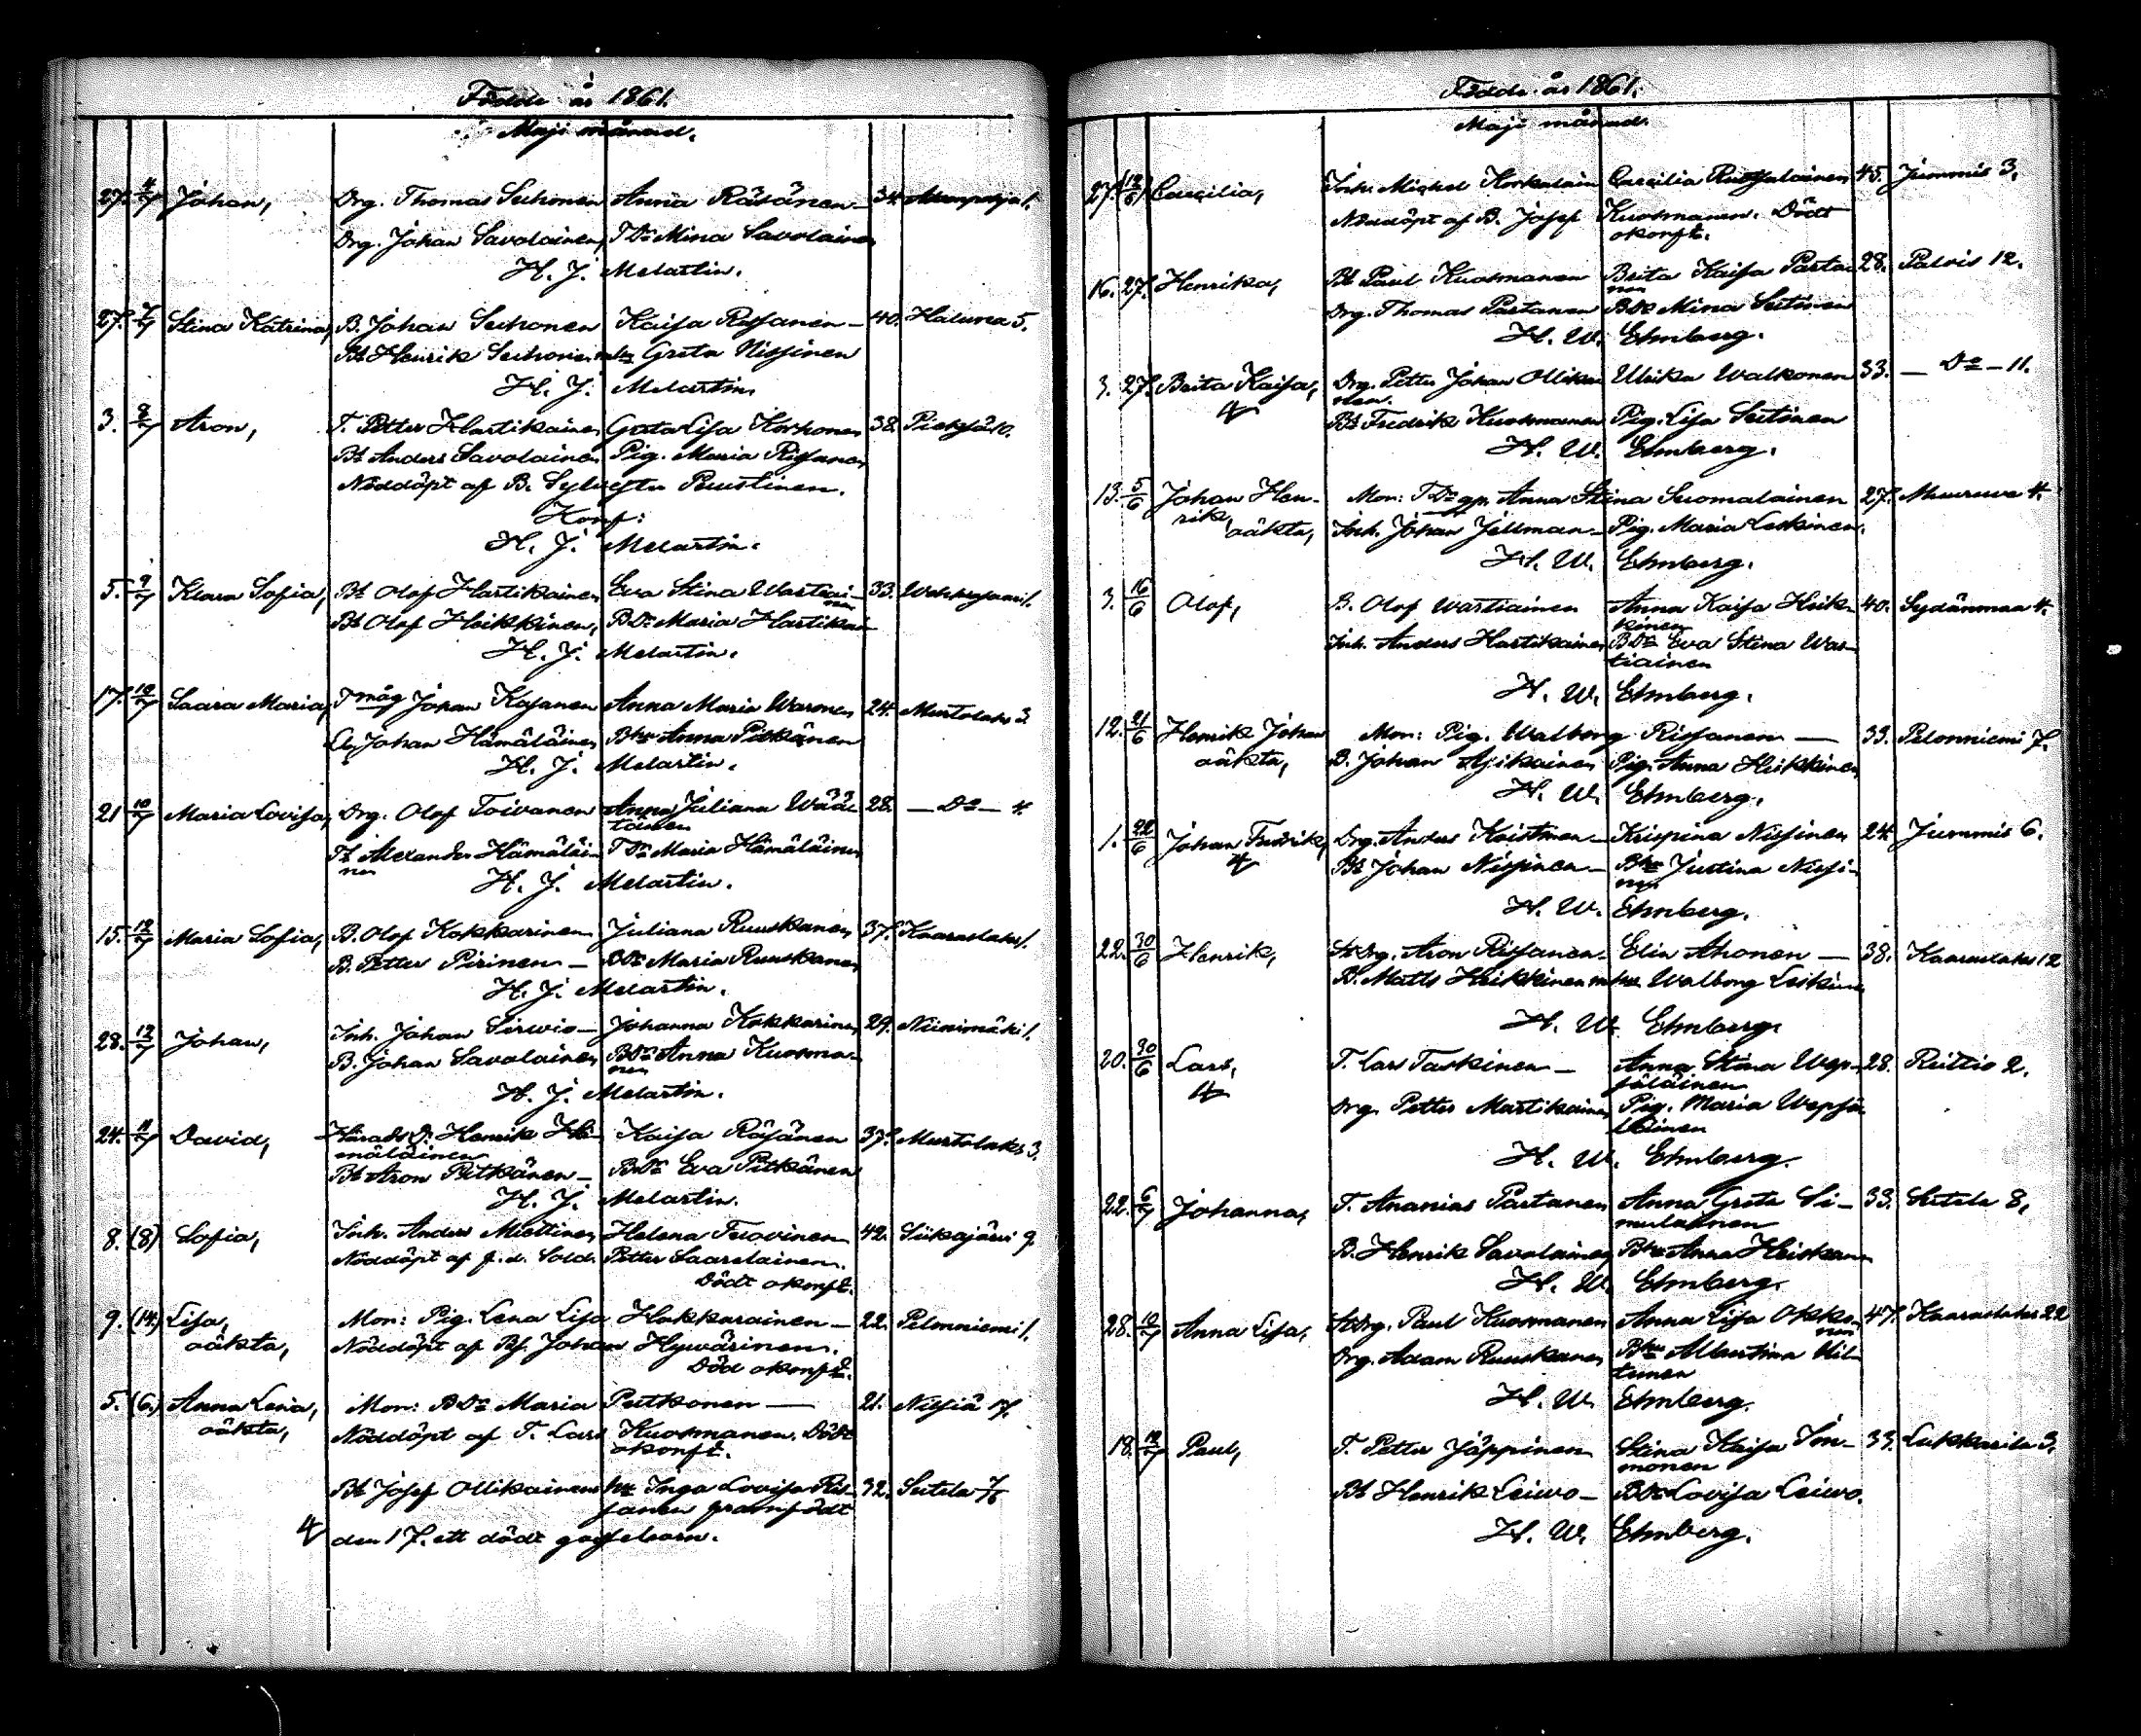 Födde år 1861.
Maji månad.
27. 4/7 Johan, Drg. Thomas Suhonen Anna Räsänen 34.
Drg. Johan Savolainen, T.Dr Mina Savolainen
H. J. Melartin.
27. 7/7 Stina Katrina, B. Johan Suhonen Kaisa Rissanen 40. Haluna 5.
Bs Henrik Suhonen Greta Nissinen
H. J. Melartin.
3. 8/7 Aron, T. Petter Hartikainen Greta Lisa Korhonen 38. Pieksä 10.
Bs Anders Savolainen Pig. Maria Rissanen
Nöddöpt af B. Sylvester Puustinen.
Konf:
H. J. Melartin.
5. 9/7 Klara Sofia, Bs Olof Hartikainen Eva Stina Wartiainen 33.
Bs Olof Heikkinen, B.Dr Maria Hartikai
H. J. Melartin.
17. 10/7 Saara Maria, Tmåg Johan Kajanen Anna Maria Waronen 24. Murtolaks 3.
Johan Hämäläinen Bhu Anna Pitkänen
H. J. Melartin.
21 10/7 Maria Lovisa, Drg. Olof Toivanen Anna Juliana Väätäinen 28. — Do — 4.
Ts Alexander Hämäläinen T.Dr Maria Hämäläinen
H. J. Melartin.
15. 12/7 Maria Sofia, B. Olof Kokkarinen Juliana Ruuskanen 37. Kaaraslaks 1.
B. Petter Pirinen — B.Dr Maria Ruuskanen
H. J. Melartin.
28. 12/7 Johan, Inh. Johan Sirwio — Johanna Kokkarinen 29. Niinimäki 1.
B. Johan Savolainen B.Dr Anna Kuosmanen
H. J. Melartin.
24. 11/7 David, Härads D. Henrik Hämäläinen Kaisa Räsänen 37. Murtolaks 3.
Bs Aron Pitkänen — B.Dr Eva Pitkänen
H. J. Melartin.
8. (8) Sofia, Inh. Anders Miettinen Helena Tuovinen 42. Siikajärvi 9.
Nöddöpt af f.d. Sold. Petter Saarelainen.
Dödt okonft.
9. (14.) Lisa, Mon: Pig. Lena Lisa Hakkarainen — 22. Pelonniemi 1.
oäkta, Nöddöpt af Bs. Johan Hywärinen.
Död okonft.
5. (6.) Anna Lena, Mon: B.Dr Maria Putkonen — 21. Nilsiä 17.
oäkta, Nöddöpt af T. Lars Kuosmanen. Dödt
okonft.
Bs Josef Ollikainens hu Inga Lovisa Rissanen framfödt 32. Sutela 7/6
den 17. ett dödt gossebarn.
Födde år 1861.
Maji månad.
27. (12/6) Caecilia, Inh. Mickel Korkalain Caecilia Russalainen 45. Jummis 3.
Nöddöpt af B. Josef Kuosmanen. Dödt
okonft.
16. 27. Henrika, Bs Paul Kuosmanen Brita Kaisa Partanen 28. Palois 12.
Drg. Thomas Partanen B.Dr Mina Sutinen
H. W. Ehnberg.
3. 27. Brita Kaisa, Drg. Petter Johan Ollikainen. Ulrika Walkonen 33. — Do — 11.
Bs Fredrik Kuosmanen Pig. Lisa Sutinen
H. W. Ehnberg.
13. 5/6 Johan Henrik, Mon: T.Dr Anna Stina Suomalainen 27. Muuruve 4.
oäkta, Inh. Johan Jillman — Pig. Maria Leskinen.
H. W. Ehnberg.
3. 16/6 Olof, B. Olof Wartiainen Anna Kaisa Heikkinen 40. Sydänmaa 4.
Inh. Anders Hartikainen B.Dr Eva Stina Wartiainen
H. W. Ehnberg.
12. 21/6 Henrik Johan Mon: Pig. Walborg Rissanen — 33. Pelonniemi 7.
oäkta, B. Johan Asikainen Pig. Anna Heikkinen
H. W. Ehnberg.
1. 22/6 Johan Fredrik, Drg. Anders Koistinen — Krispina Nissinen 24. Jummis 6.
Bs Johan Nissinen — Bhu Justina Nissinen
H. W. Ehnberg.
22. 30/6 Henrik, StDrg. Aron Rissanen — Elin Ahonen — 38. Kaaraslaks 12
B. Matts Heikkinen m. hu Walborg Leskinen
H. W. Ehnberg.
20. 30/6 Lars, T. Lars Taskinen — Anna Stina Wepsäläinen 28. Reittio 2.
Drg. Petter Martikainen Pig. Maria Wepsäläinen
H. W. Ehnberg.
22. 6/7 Johanna, T. Ananias Partanen Anna Greta Simulainen 33. Sutela 8.
B. Henrik Savolainen Bhu Anna Heiskanen
H. W. Ehnberg.
28. Anna Lisa, StDrg. Paul Kuosmanen Anna Lisa Okkonen 47. Kaaraslaks 22
Drg. Adam Ruuskanen Bhu Albertina Hiltunen
H. W. Ehnberg.
18. Paul, T. Petter Jäppinen Stina Kaisa Immonen 33. Lukkarila 3.
Bs Henrik Leiwo — B.Dr Lovisa Leiwo.
H. W. Ehnberg.